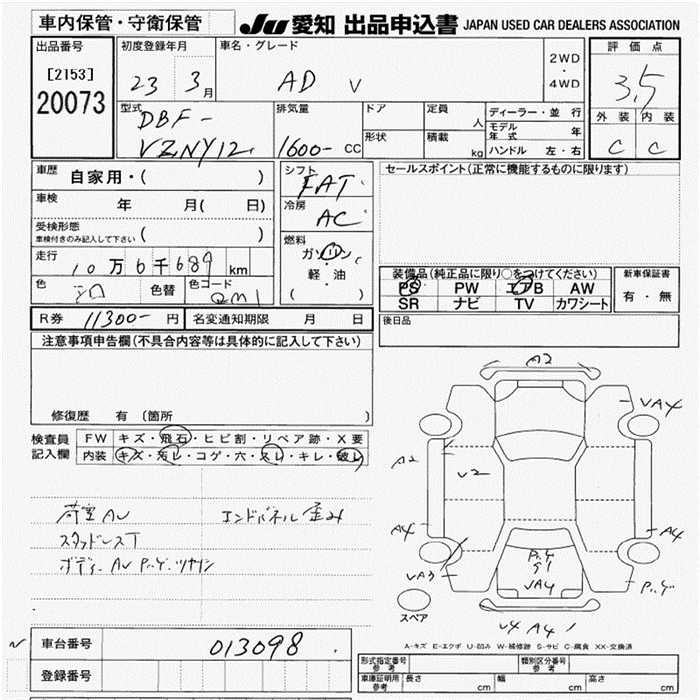 車内保管・守衛保管
JU 愛知 出品申込書 JAPAN USED CAR DEALERS ASSOCIATION
出品番号
[2153]
20073
初度登録年月
23 3月
車名・グレード
AD V
2WD
・
4WD
評価点
3.5
外装 内装
C C
型式
DBF-
VZNY12
排気量
1600- CC
ドア
形状
定員 人
積載 kg
ディーラー・並行
モデル年式 年
ハンドル 左・右
車歴 自家用・( )
車検 年 月( 日)
受検形態
車検付きのみ記入して下さい ( )
走行 10万6千689 km
色 シロ 色替 色コード QM1
シフト
FAT
冷房
AC
燃料
ガソリン
・
軽・油
( )
セールスポイント(正常に機能するものに限ります)
装備品(純正品に限り○をつけてください)
PS PW エアB AW
SR ナビ TV カワシート
新車保証書
有・無
R券 11300- 円 名変通知期限 月 日
後日品
注意事項申告欄(不具合内容等は具体的に記入して下さい)
修復歴 有 〔箇所 〕
検査員記入欄
FW キズ・飛石・ヒビ割・リペア跡・X要
内装 キズ・汚レ・コゲ・穴・スレ・キレ・破レ
荷室AU エンドパネル歪み
スタッドレスT
ボディーAU P.ケ.ツヤナシ
A2
VA4
A2
V2
A4
A4
VA3
P.ケ
S1
VA4
P.ケ
スペア
V4 A4
A-キズ E-エクボ U-凹み W-補修跡 S-サビ C-腐食 XX-交換済
車台番号 013098
登録番号
形式指定番号 参考
類別区分番号 参考
車庫証明用 参考 長さ cm 幅 cm 高さ cm